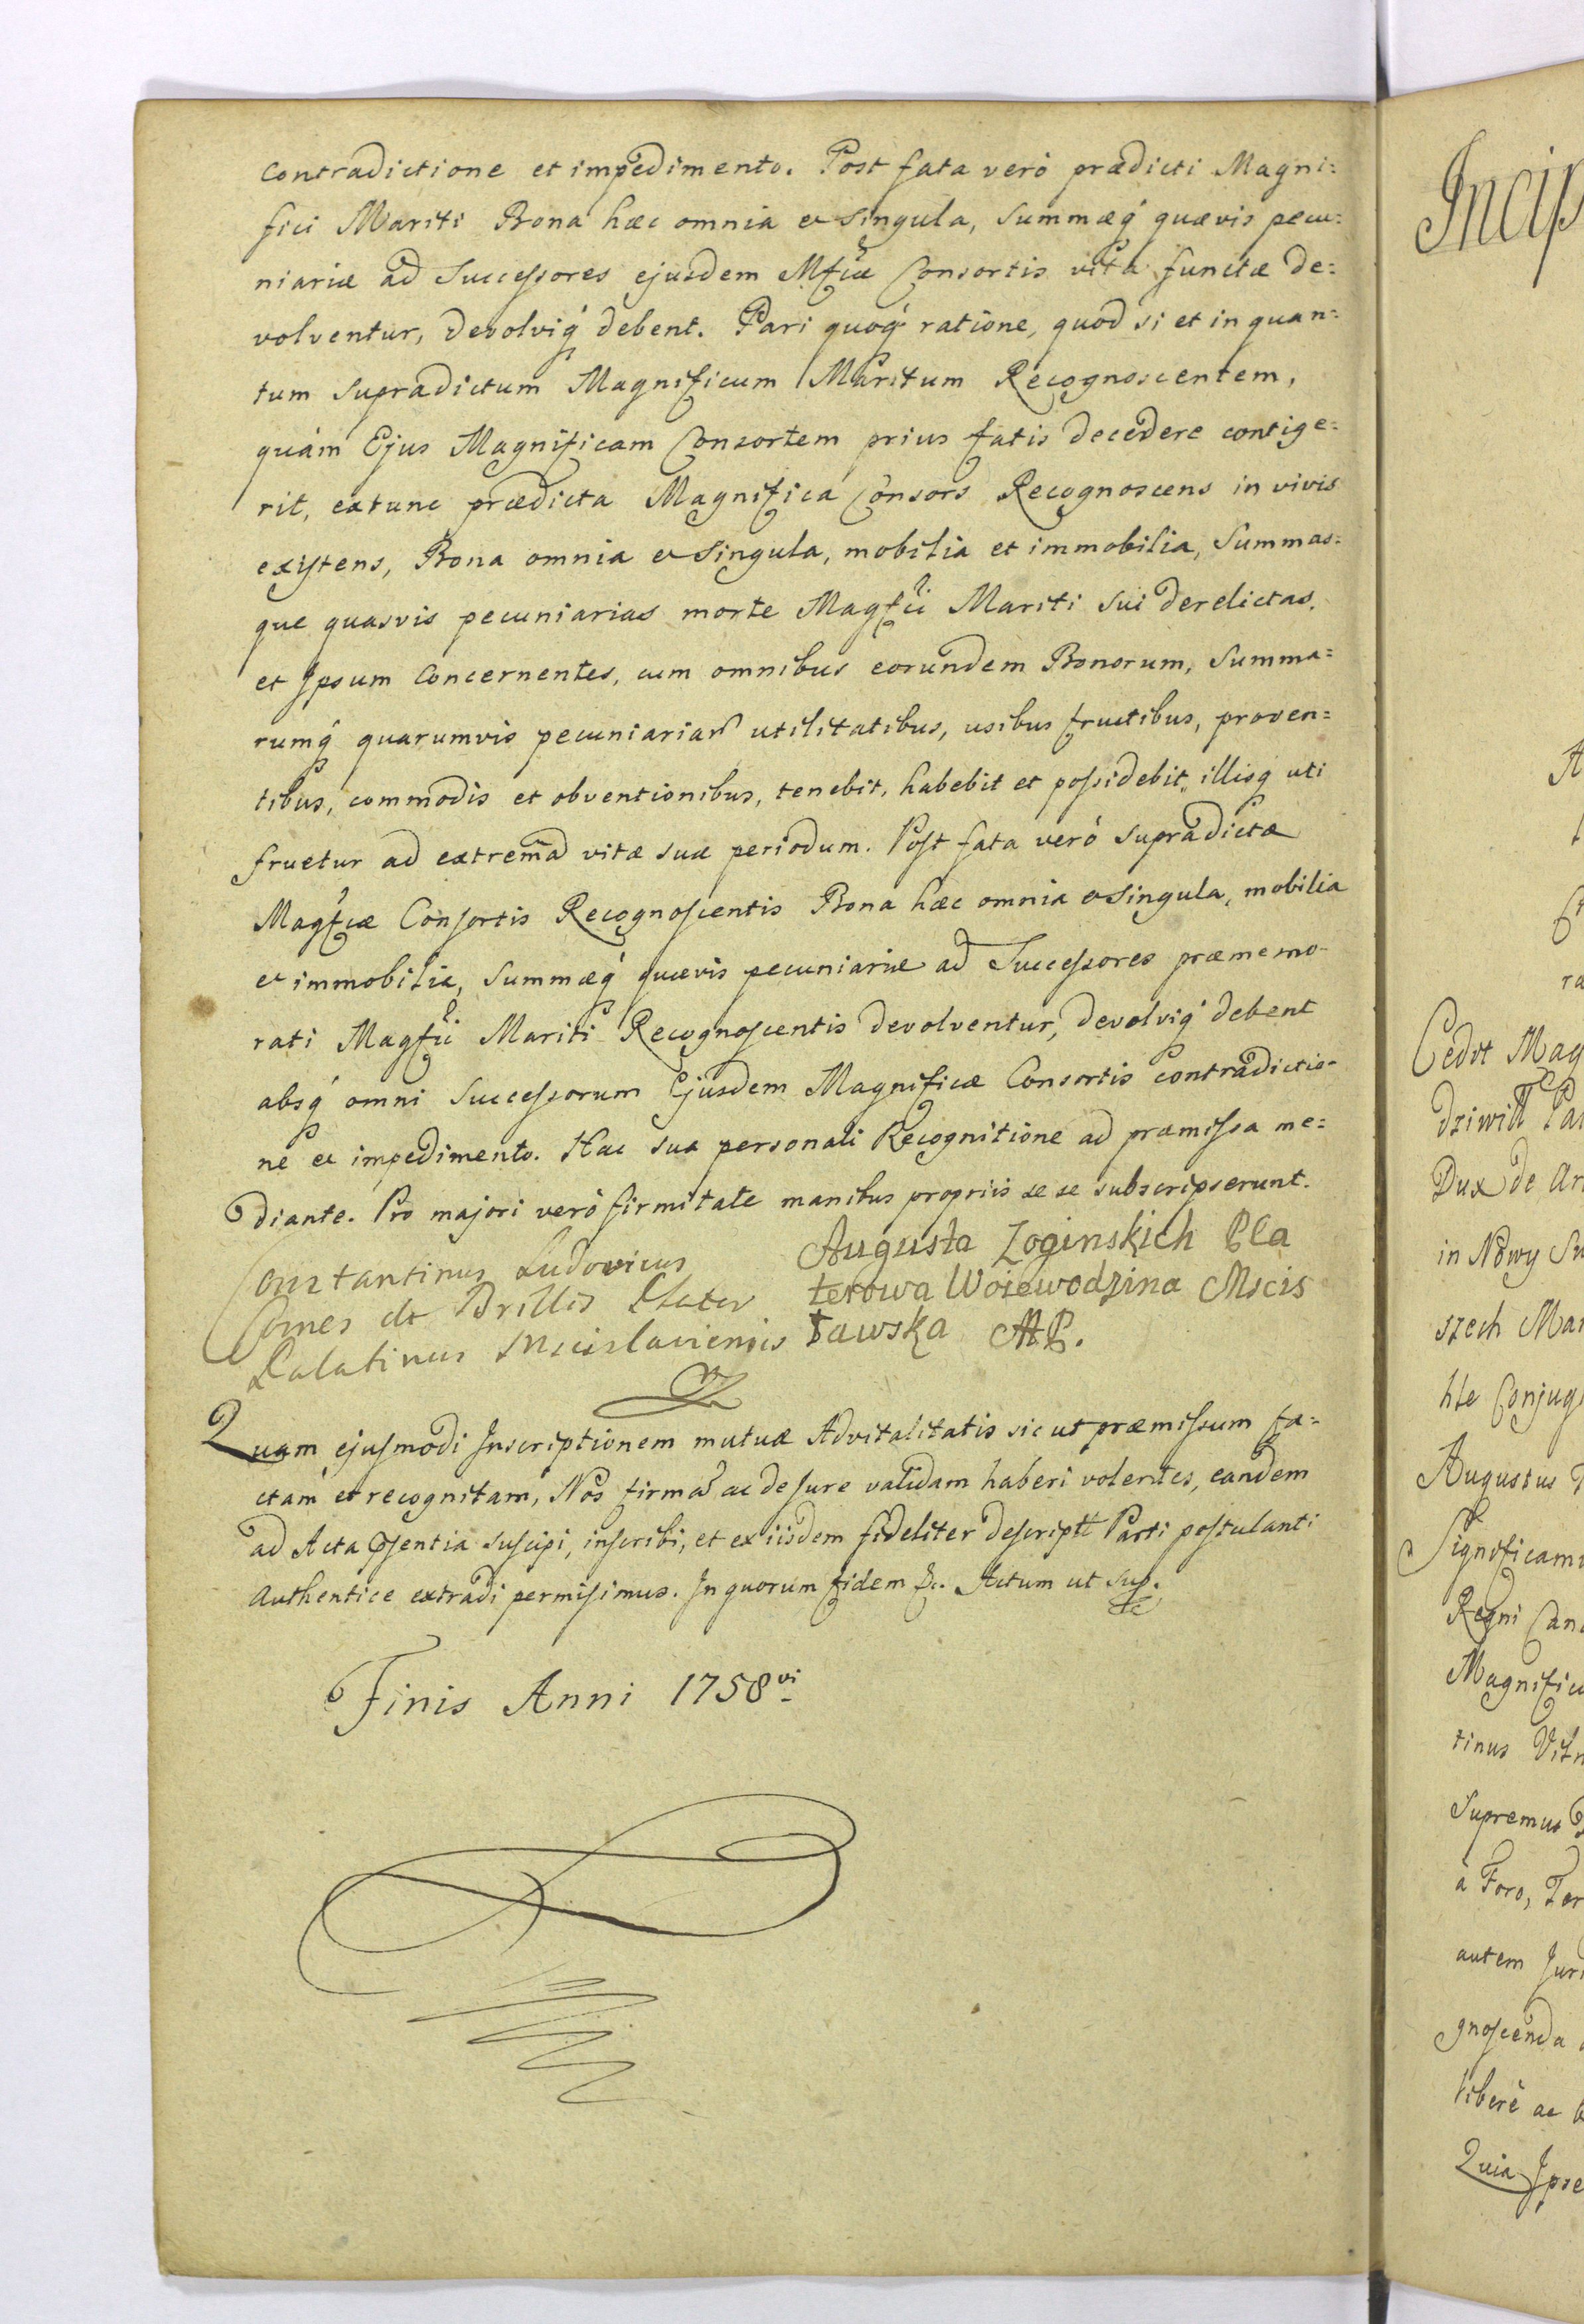 contradictione et impedimento. Post fata verò prædicti Magni=
fici Mariti Bona hæc omnia et singula, summæq́ quævis pecu=
niariæ ad Successores ejusdem Mfcæ Consortis vita functæ de=
volventur, devolviq́ debent. Pari quoq́ ratione, quod si et in quan=
tum supradictum Magnificum Maritum Recognoscentem,
quàm Ejus Magnificam Consortem prius fatis decedere contige=
rit, extunc prædicta Magnifica Consors Recognoscens in vivis
existens, Bona omnia et singula, mobilia et immobilia, Summas=
que quasvis pecuniarias morte Magfci Mariti sui derelictas,
et Ipsum Concernentes, cum omnibus eorundem Bonorum, Summa=
rumq́ quarumvis pecuniariar̃ utilitatibus, usibus fructibus, proven=
tibus, commodis et obventionibus, tenebit, habebit et possidebit, illisq́ uti
fruetur ad extremã vitæ suæ periodum. Post fata verò supradictæ
Magfcæ Consortis Recognoscentis Bona hæc omnia et singula, mobilia
et immobilia, summæq́ quævis pecuniariæ ad Successores præmemo-
rati Magfci Mariti Recognoscentis devolventur, devolviq́ debent
absq́ omni Successorum Ejusdem Magnificæ Consortis contradictio-
ne et impedimento. Hac sua personali Recognitione ad præmissa me=
diante. Pro majori verò firmitate manibus propriis se se subscripserunt.
Constantinus Ludovicus
Comes de Brillis Plater
Palatinus Mscislaviensis
Augusta Zoginskich Pla
terowa Woiewodzina Mscis
ławska MP.
Quam ejusmodi Inscriptionem mutuæ Advitalitatis sic ut præmissum fa=
ctam et recognitam, Nos firmã ac de Jure validam haberi volentes, eandem
ad Acta Psentia suscipi, inscribi, et ex iisdem fideliter descript Parti postulanti
Authentice extradi permisimus. In quorum fidem &c. Actum ut sup.
Finis Anni 1758vi
Incip
Cedit Mag
dziwiłł Pal
Dux de
in Nowy
szech Mar
hle Conjug
Augustus
Significam
Regni Canc
Magnific
tinus Viln
Supremus
a Foro, Ter
autem Juri
gnoscenda
liberè ac
Quia Ipse